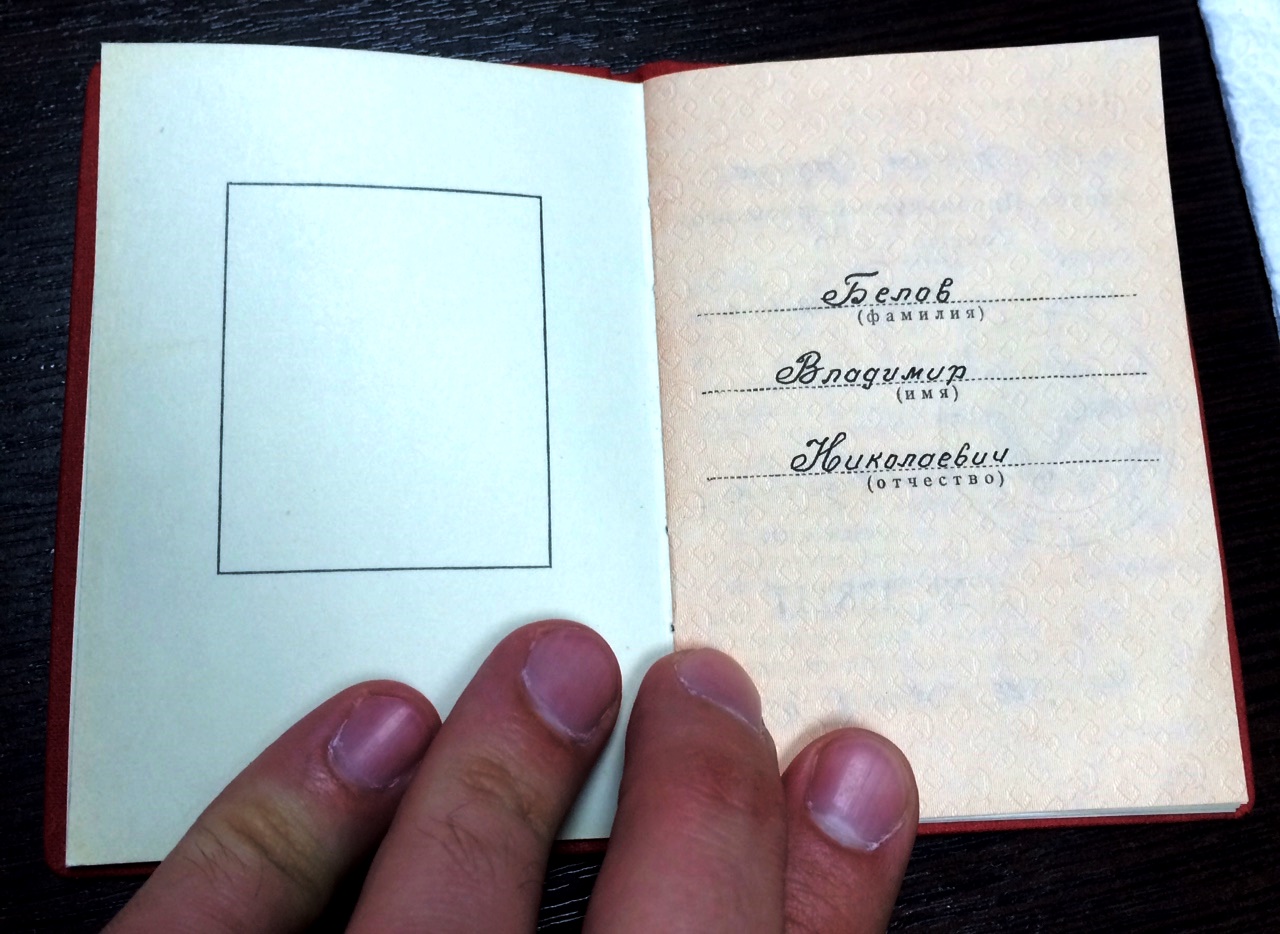 Белов
(фамилия)
Владимир
(имя)
Николаевич
(отчество)